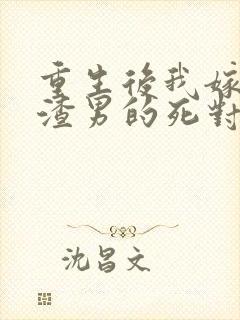 重生後我嫁
渣男的死對
沈昌文